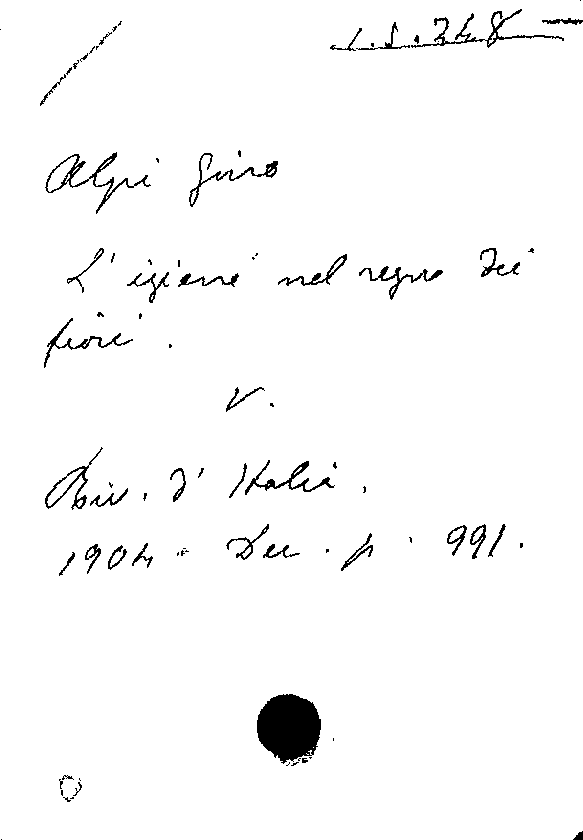 1.S.348
Alpi Gino
L'igiene nel regno dei
fiori.
V.
Riv. d'Italia,
1904. Dec. p. 991.